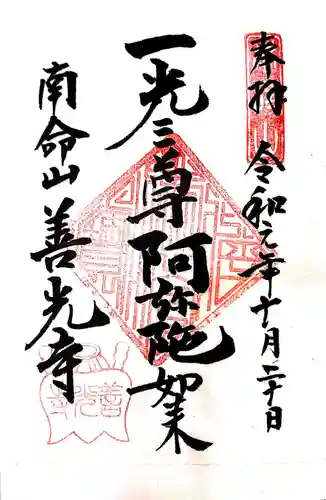 奉拝
令和元年十月二十日
一光三尊阿弥陀如来
南命山善光寺
善光寺